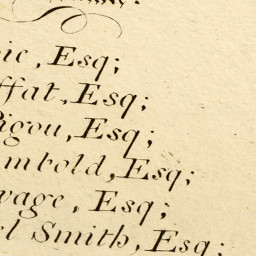 ic, Esq;
ffat, Esq;
Pigou, Esq;
mbold, Esq;
vage, Esq;
el Smith, Esq;